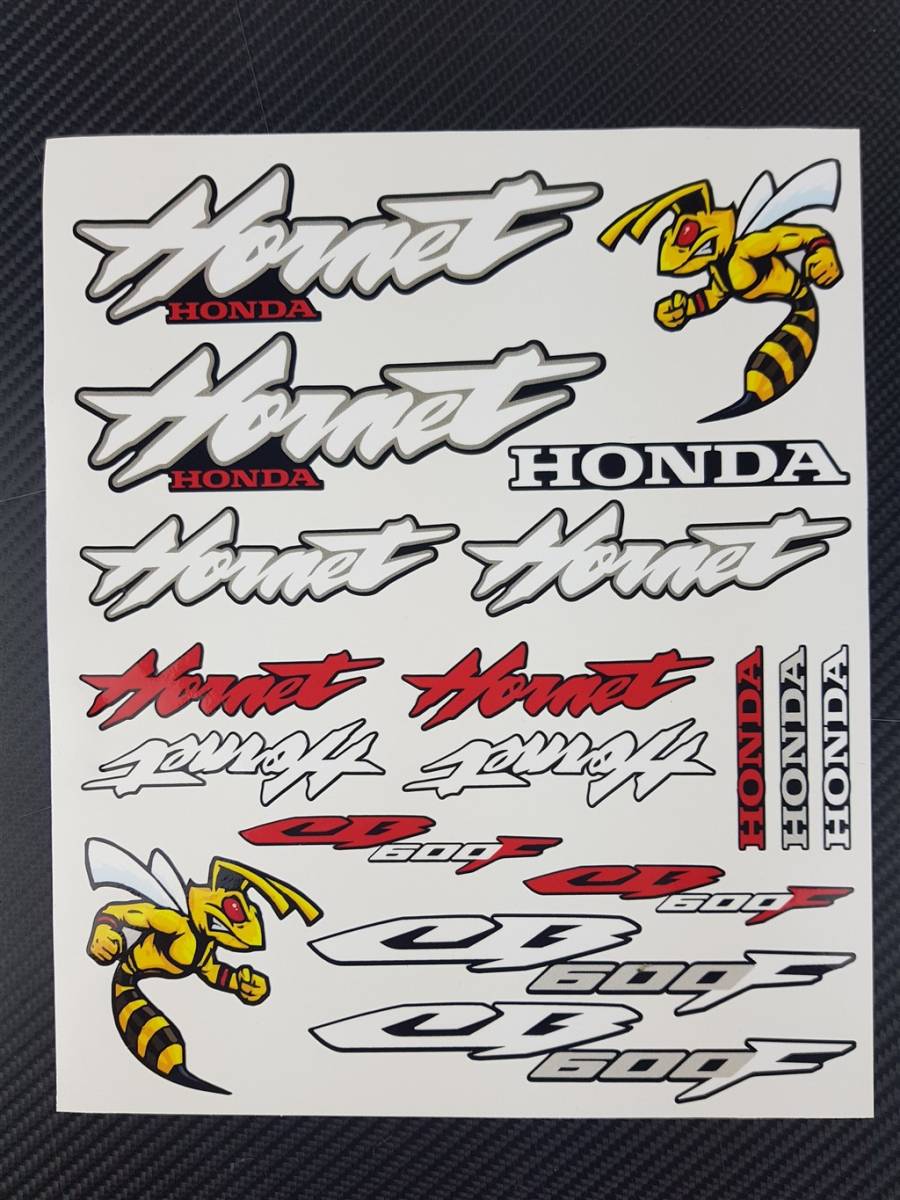 Hornet
HONDA
Hornet
HONDA
HONDA
Hornet Hornet
Hornet Hornet
Hornet Hornet
HONDA HONDA HONDA
CB
600F
CB
600F
CB
600F
CB
600F